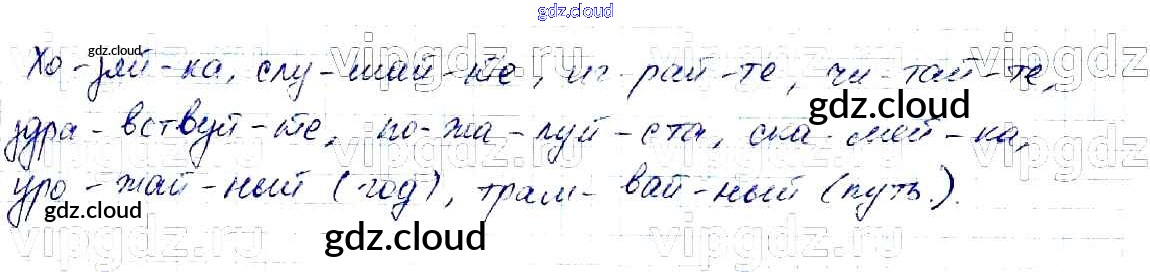 gdz.cloud
Хо-зяй-ка, слу-шай-те, иг-рай-те, чи-тай-те,
здра-вствуй-те, по-жа-луй-ста, ска-мей-ка,
уро-жай-ный (год), трам-вай-ный (путь.).
gdz.cloud
gdz.cloud
gdz.cloud
gdz.cloud
vipgdz.ru vipgdz.ru vipgdz.ru vipgdz.ru
vipgdz.ru vipgdz.ru vipgdz.ru vipgdz.ru
vipgdz.ru vipgdz.ru vipgdz.ru vipgdz.ru